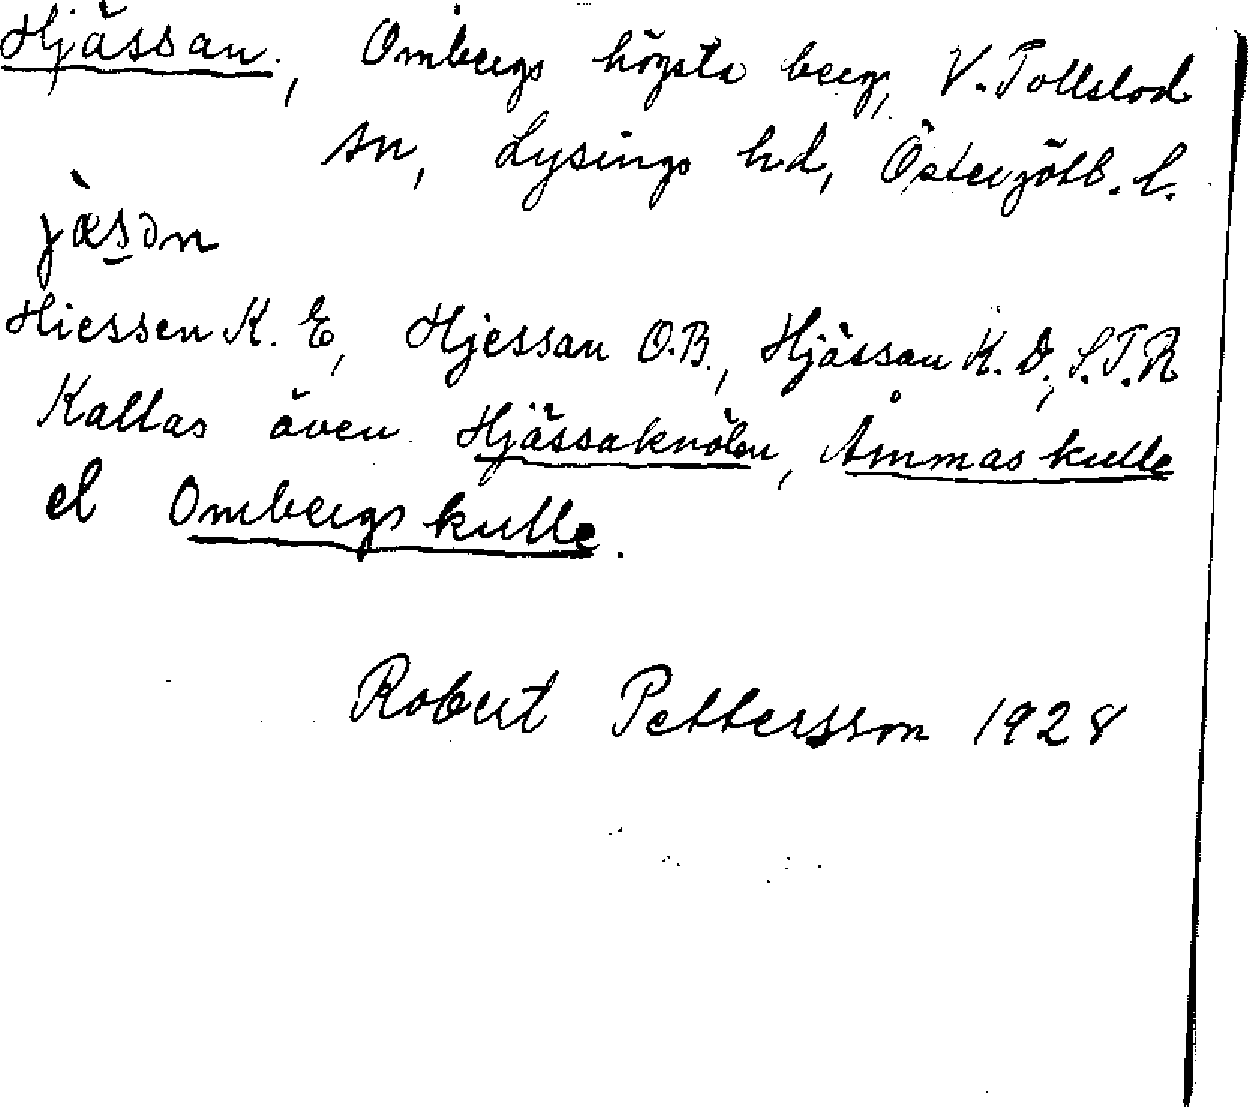 Hjässan, Ombergs högsta berg, V. Tollstad
sn, Lysings hd, Östergötl. l.
jæ̀s̲ən
Hiessen K. E, Hjessan O.B., Hjässan K. D., S.T.R
Kallas även Hjässaknölen, Åmmas kulle
el Ombergs kulle.
Robert Pettersson 1928